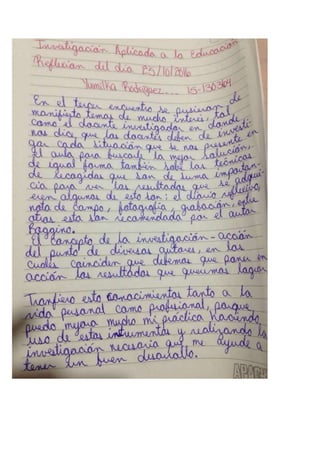 Investigación Aplicada a la Educación
Reflexión del día 25/10/2016
Yumilka Rodriguez... 15-130304
En el tercer encuentro se pusieron de
manifiesto temas de mucho interés, tal
como el docente investigador en donde
nos dice, que los docentes deben de investi-
gar cada situación que se nos presente en
el aula para buscarle la mejor solución,
de igual forma también sobre las técnicas
de recogidas que son de suma importan-
cia para ver los resultados que se adqui-
eren algunas de esta son: el diario reflexivo,
nota de campo, fotografía, grabación, entre
otras esta son recomendada por el autor
Boggino.
El concepto de la investigación-acción
del punto de diversos autores, en los
cuales coinciden que debemos que poner en
acción los resultados que queremos lograr
Tranfiero esto conocimientos tanto a la
vida personal como profesional, porque
puedo mejorar mucho mi práctica haciendo
uso de estas intrumentos y realizando la
investigación necesaria que me ayude a
tener un buen desarrollo.
APACHE